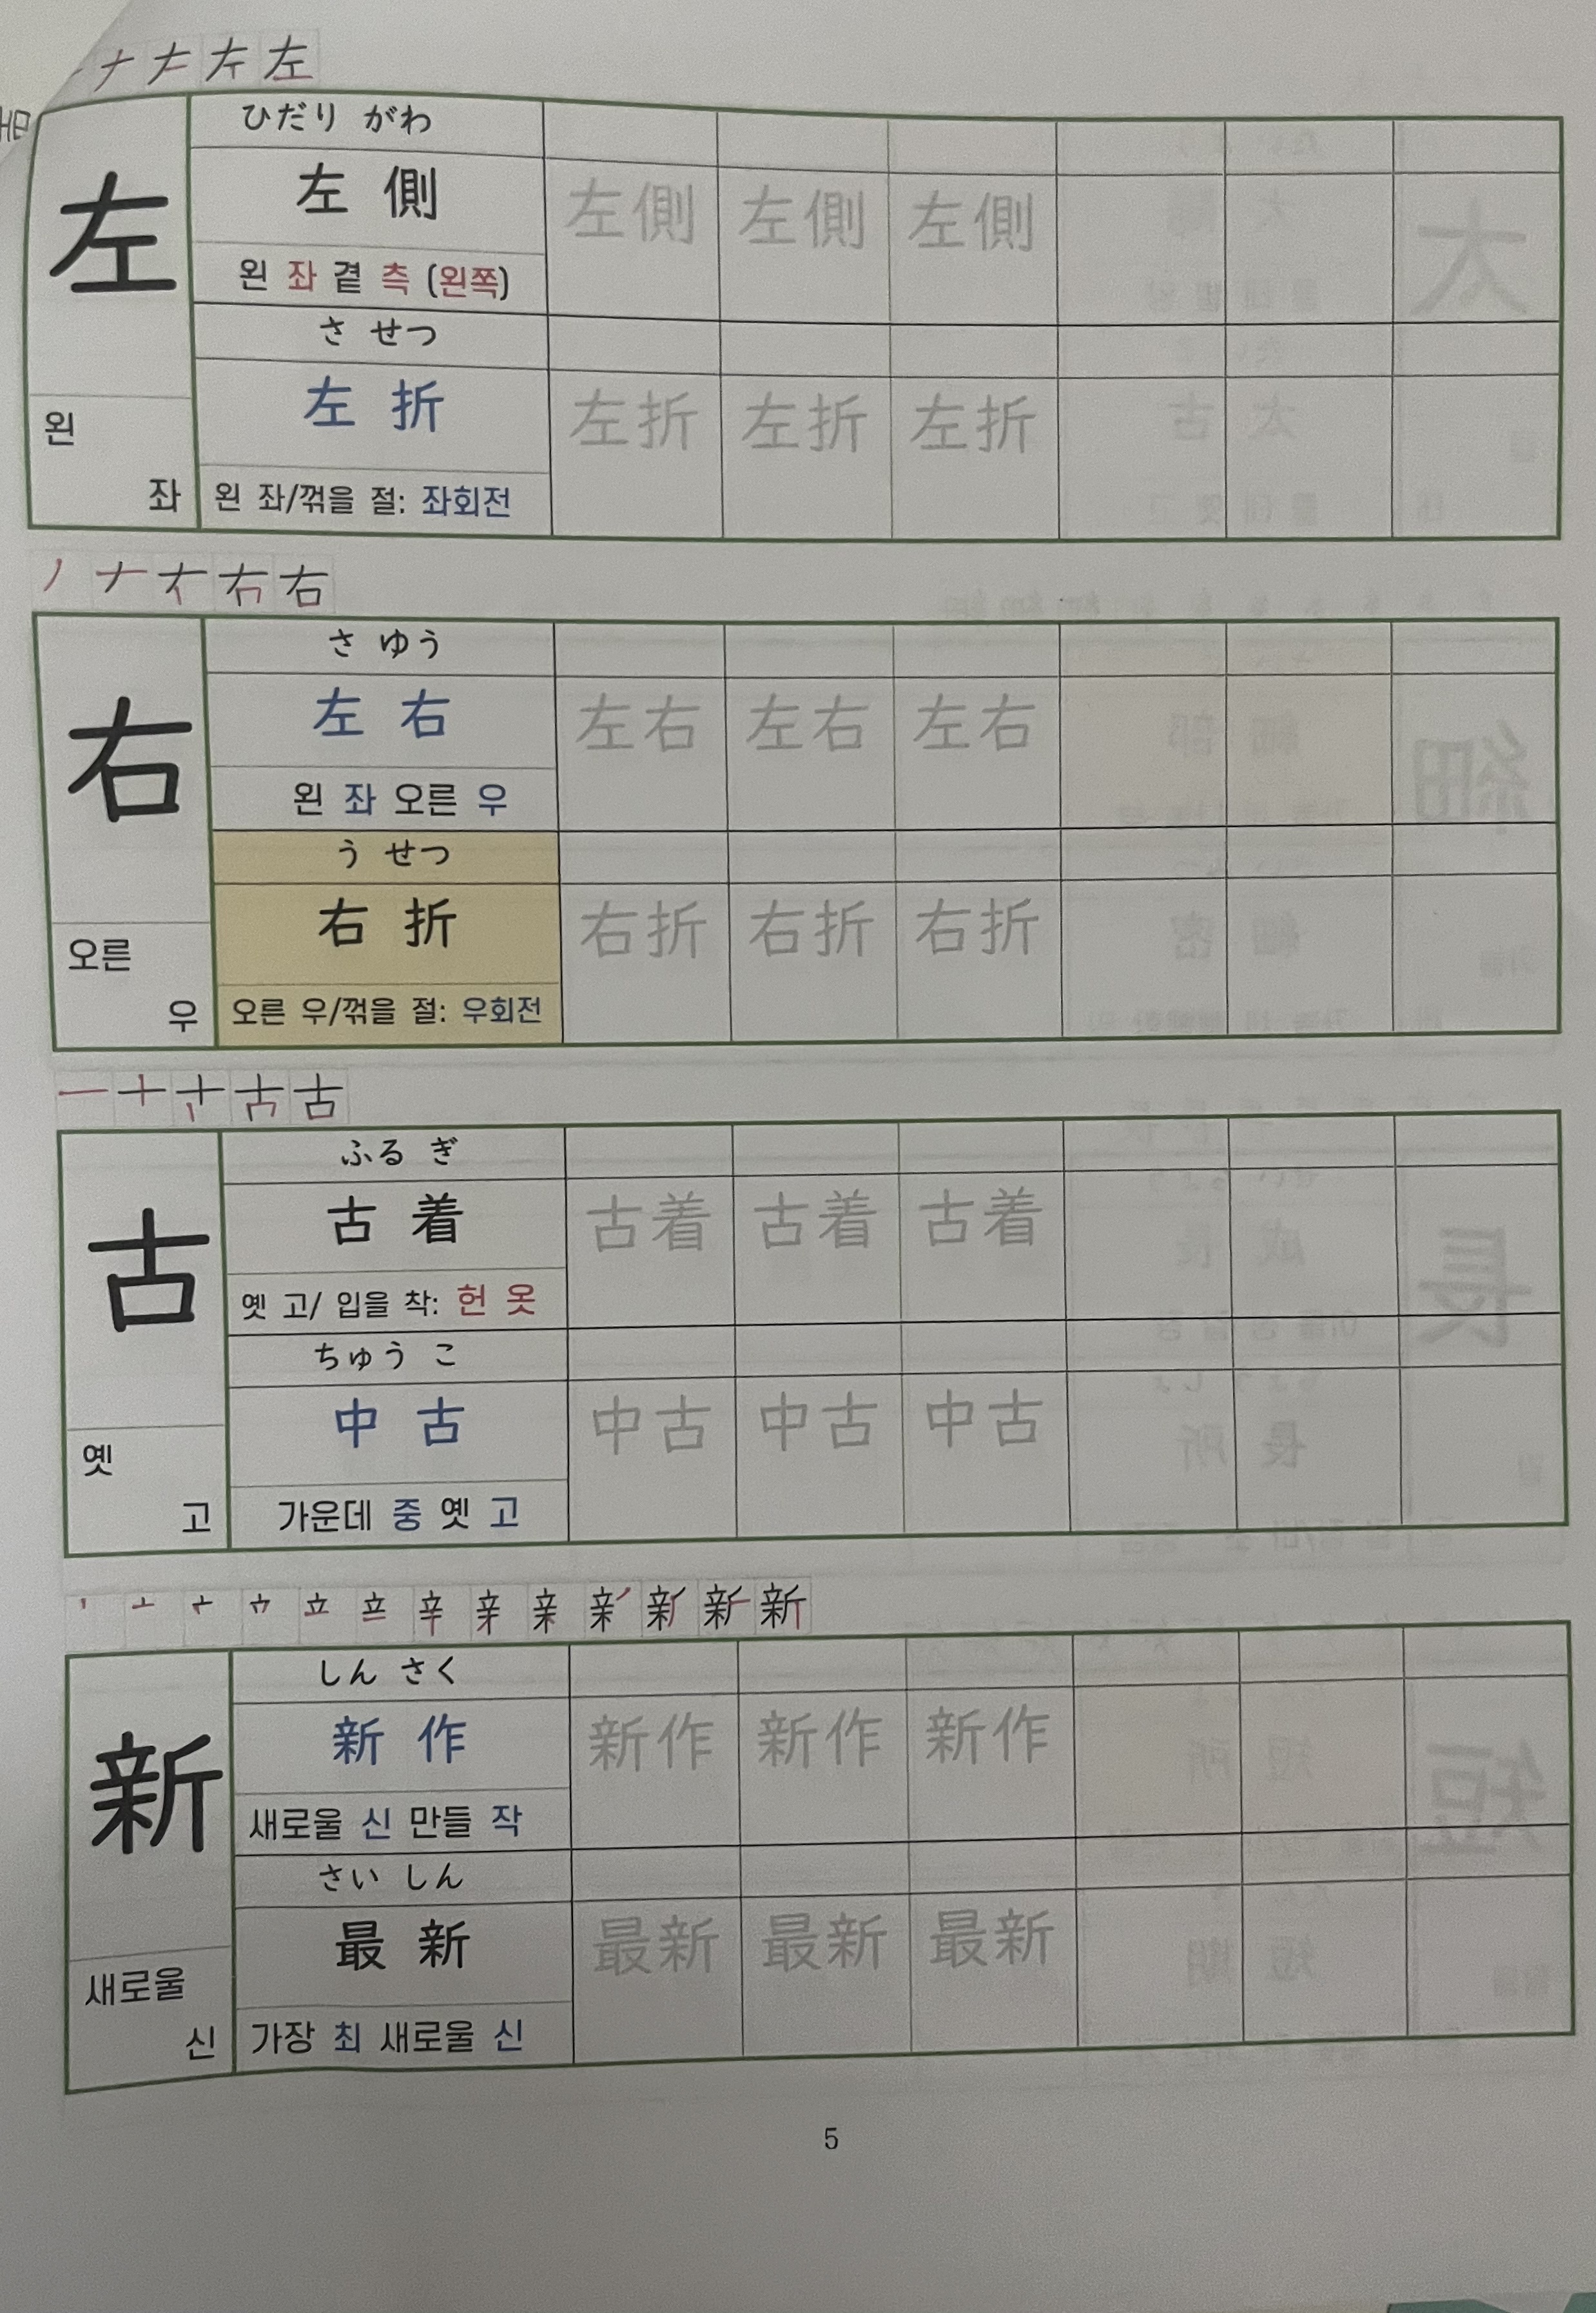 左
ひだり がわ
左 側 左側 左側 左側
왼 좌 곁 측 (왼쪽)
さ せつ
左 折 左折 左折 左折
왼 좌/꺾을 절: 좌회전
왼
좌
右
さ ゆう
左 右 左右 左右 左右
왼 좌 오른 우
う せつ
右 折 右折 右折 右折
오른 우/꺾을 절: 우회전
오른
우
古
ふる ぎ
古 着 古着 古着 古着
옛 고/ 입을 착: 헌 옷
ちゅう こ
中 古 中古 中古 中古
가운데 중 옛 고
옛
고
新
しん さく
新 作 新作 新作 新作
새로울 신 만들 작
さい しん
最 新 最新 最新 最新
가장 최 새로울 신
새로울
신
5